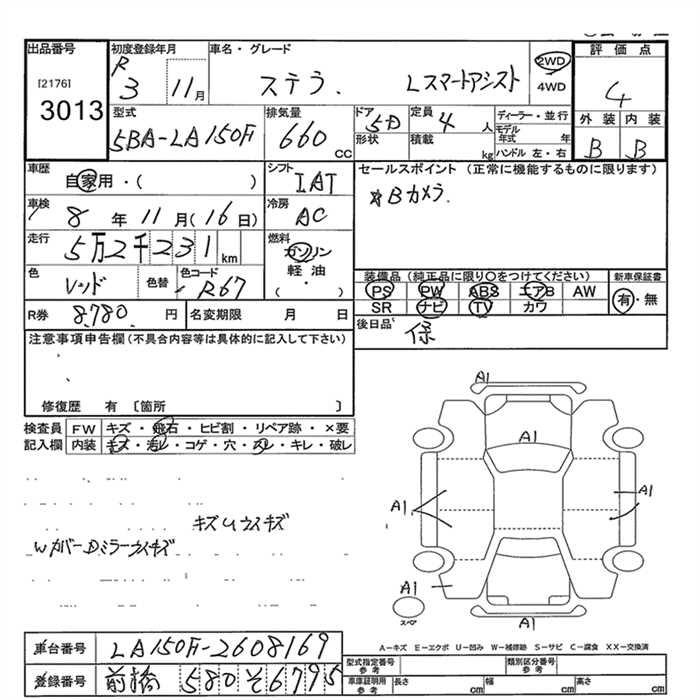 出品番号 初度登録年月 車名・グレード 2WD 評価点
[2176] R 3 11月 ステラ. Lスマートアシスト 4WD 4
3013
型式 排気量 ドア 5D 定員 4人 ディーラー・並行 外装 内装
5BA-LA150F 660cc 形状 積載 kg モデル年式 年 B B
ハンドル 左・右
車歴 自家用・( ) シフト IAT セールスポイント (正常に機能するものに限ります)
車検 8年11月(16日) 冷房 AC *Bカメラ.
走行 5万2千231km 燃料 ガソリン
色 レッド 色替 色コード R67 軽油 ・( ) 装備品(純正品に限り○をつけてください) 新車保証書
PS PW ABS エアB AW 有・無
R券 8,780円 名変期限 月 日 SR ナビ TV カワ
注意事項申告欄(不具合内容等は具体的に記入して下さい) 後日品 保
修復歴 有 〔箇所 〕
検査員 FW キズ・飛石・ヒビ割・リペア跡・×要
記入欄 内装 キズ・汚レ・コゲ・穴・スレ・キレ・破レ
A1
A1
A1 A1
キズUウスキズ
WカバーDミラーウスキズ
A1
スペア
A1
A-キズ E-エクボ U-凹み W-補修跡 S-サビ C-腐食 XX-交換済
車台番号 LA150F-2608169
型式指定番号 参考 類別区分番号 参考
登録番号 前橋 580 そ 6795
車庫証明用 参考 長さ cm 幅 cm 高さ cm